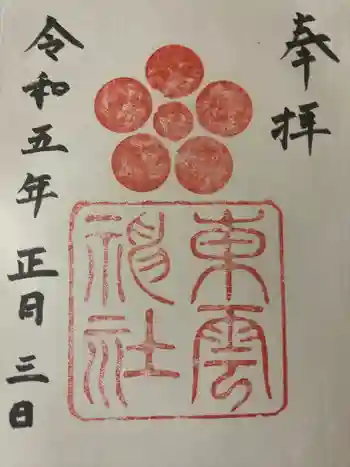 奉拝
東雲
神社
令和五年正月三日